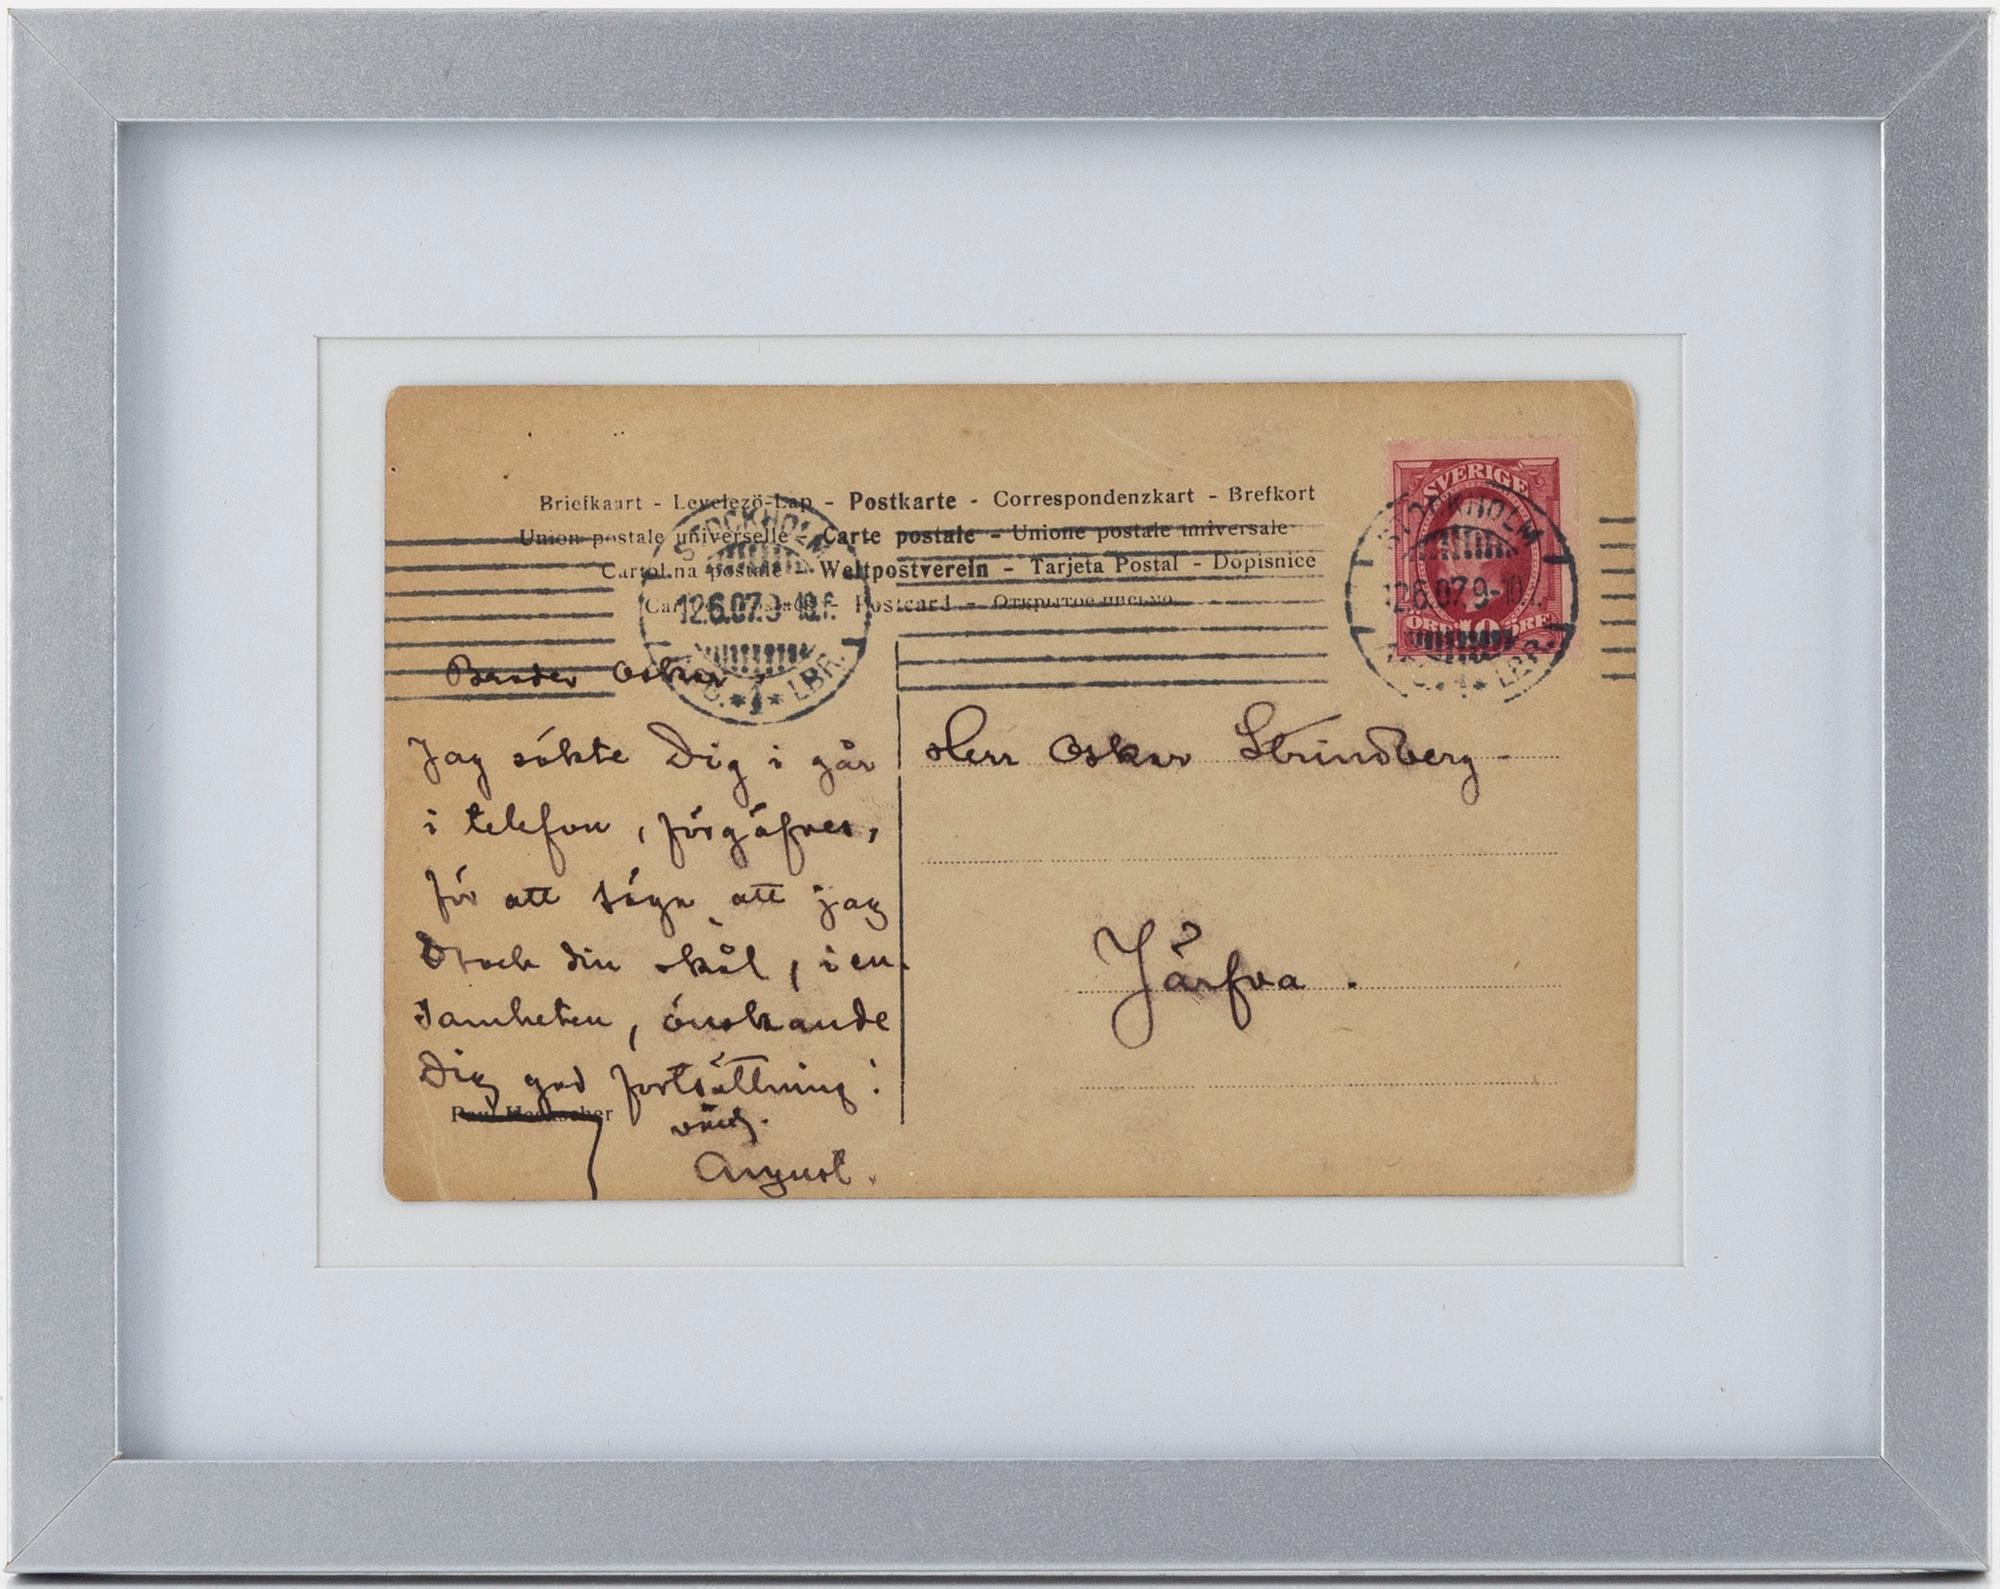 Briefkaart - Levelezö-Lap - Postkarte - Correspondenzkart - Brefkort
Union postale universelle - Carte postale - Unione postale universale
Cartolina postale - Weltpostverein - Tarjeta Postal - Dopisnice
Postcard - Открытое письмо
STOCKHOLM
12.6.07.9-10.F.
1 LBR.
SVERIGE
ÖRE 10 ÖRE
STOCKHOLM
12.6.07.9-10
1 LBR.
Broder Oskar,
Jag sökte Dig i går
i telefon, förgäfves,
för att säga att jag
drack din skål, i en-
samheten, önskande
Dig god fortsättning!
Paul Heckscher
August.
Herr Oskar Strindberg
Järfva.